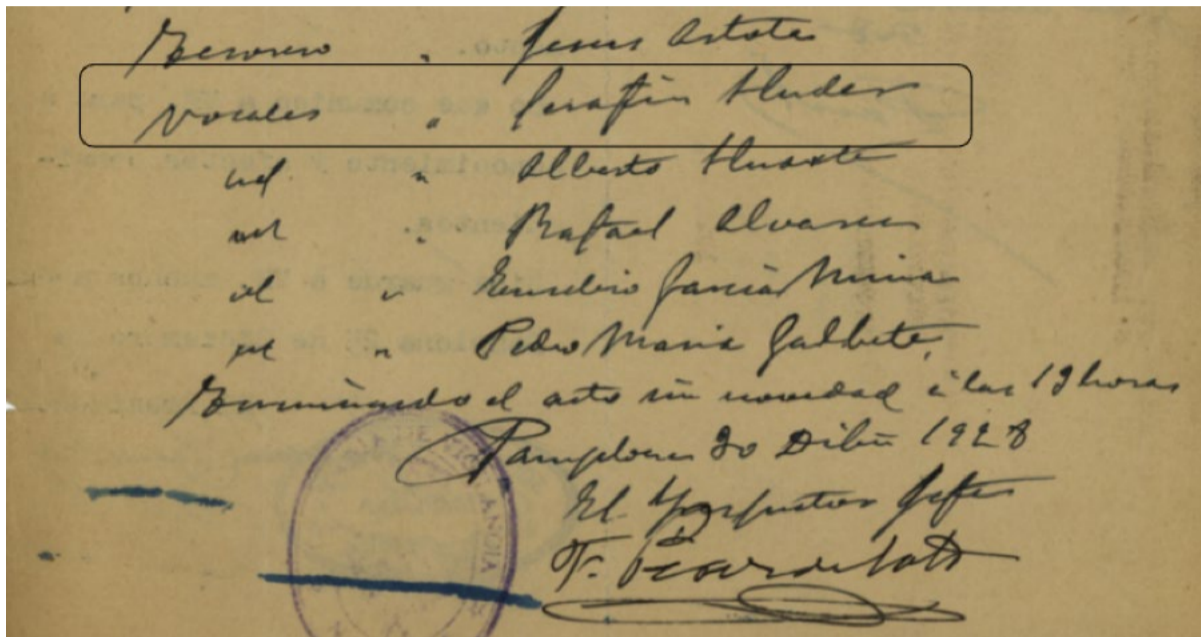 Tesorero " Jesus Artola
Vocales " Serafin Huder
id. " Alberto Huarte
id " Rafael Alvarez
id " Eusebio Garcia Mina
id " Pedro Maria Galbete.
Terminando el acto sin novedad á las 19 horas
Pamplona 30 Dibre 1928
El Inspector Jefe
F.
VIGILANCIA